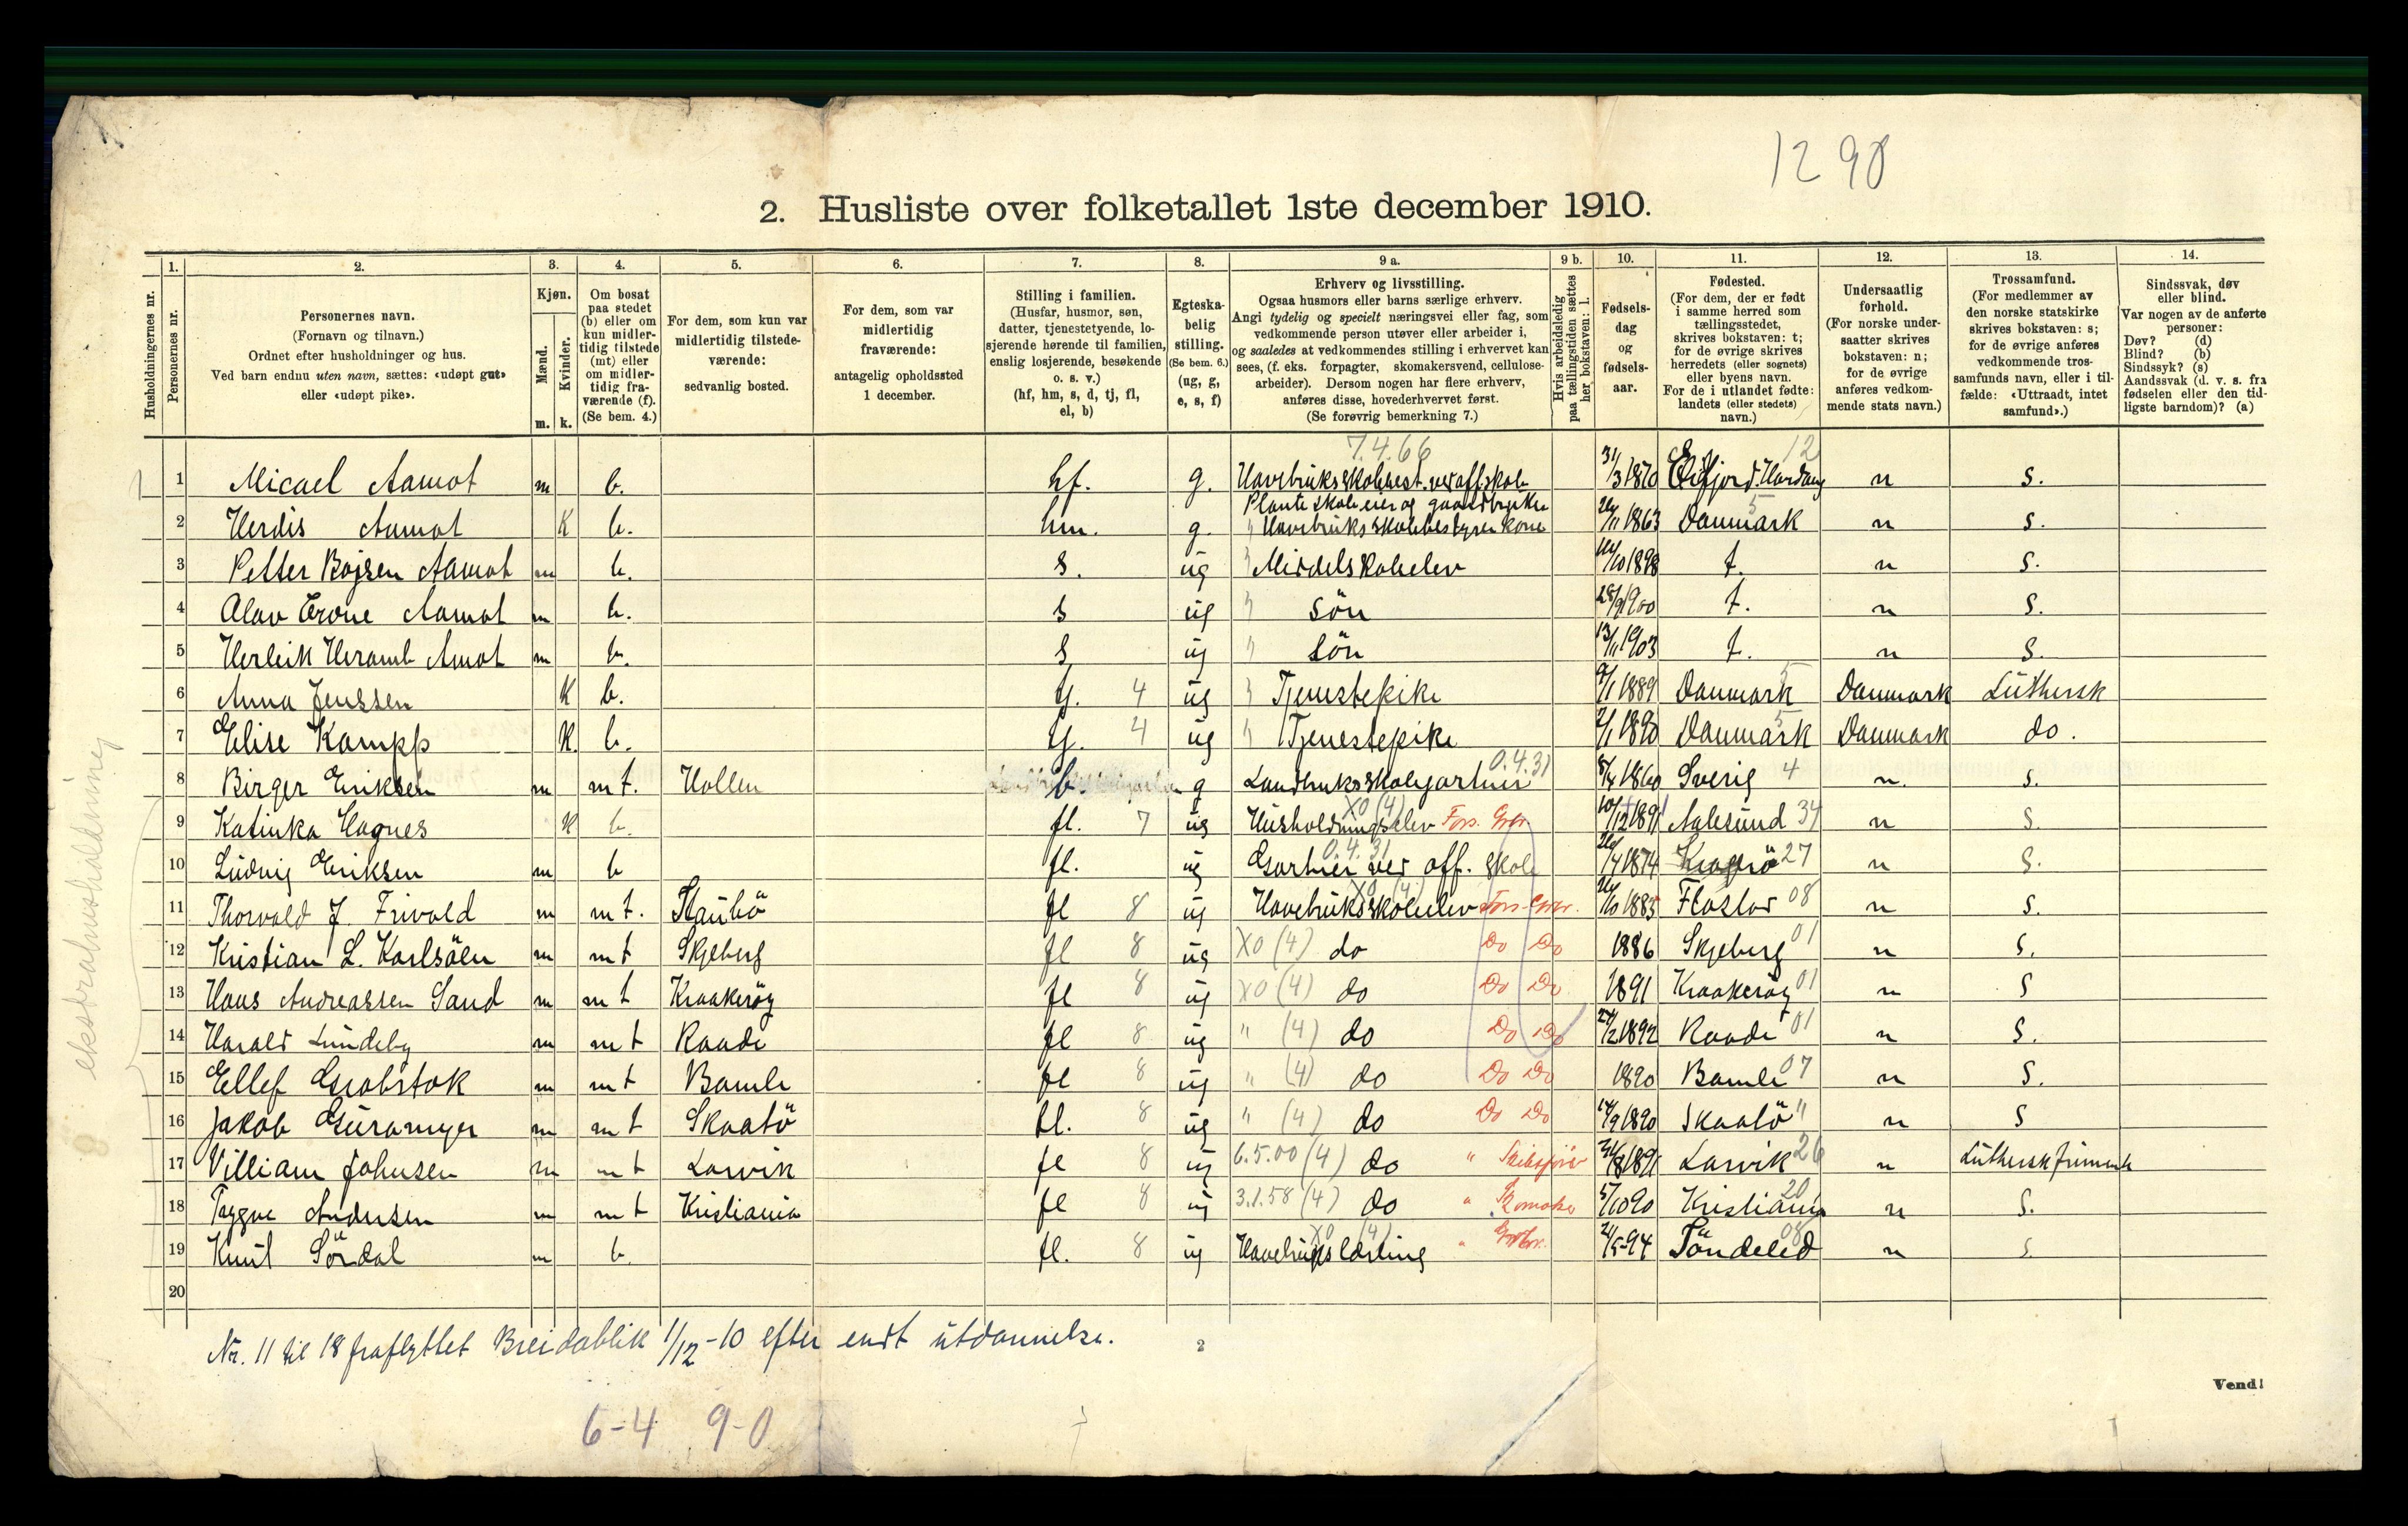 1290
2. Husliste over folketallet 1ste december 1910.
Husholdningernes nr.
1. Personernes nr.
2. Personernes navn.
(Fornavn og tilnavn.)
Ordnet efter husholdninger og hus.
Ved barn endnu uten navn, sættes: «udøpt gut»
eller «udøpt pike».
3. Kjøn.
Mænd. m.
Kvinder. k.
4. Om bosat
paa stedet
(b) eller om
kun midler-
tidig tilstede
(mt) eller
om midler-
tidig fra-
værende (f).
(Se bem. 4.)
5. For dem, som kun var
midlertidig tilstede-
værende:
sedvanlig bosted.
6. For dem, som var
midlertidig
fraværende:
antagelig opholdssted
1 december.
7. Stilling i familien.
(Husfar, husmor, søn,
datter, tjenestetyende, lo-
sjerende hørende til familien,
enslig losjerende, besøkende
o. s. v.)
(hf, hm, s, d, tj, fl,
el, b)
8. Egteska-
belig
stilling.
(Se bem. 6.)
(ug, g,
e, s, f)
9 a. Erhverv og livsstilling.
Ogsaa husmors eller barns særlige erhverv.
Angi tydelig og specielt næringsvei eller fag, som
vedkommende person utøver eller arbeider i,
og saaledes at vedkommendes stilling i erhvervet kan
sees, (f. eks. forpagter, skomakersvend, cellulose-
arbeider). Dersom nogen har flere erhverv,
anføres disse, hovederhvervet først.
(Se forøvrig bemerkning 7.)
9 b. Hvis arbeidsledig
paa tællingstiden sættes
her bokstaven: l.
10. Fødsels-
dag
og
fødsels-
aar.
11. Fødested.
(For dem, der er født
i samme herred som
tællingsstedet,
skrives bokstaven: t;
for de øvrige skrives
herredets (eller sognets)
eller byens navn.
For de i utlandet fødte:
landets (eller stedets)
navn.)
12. Undersaatlig
forhold.
(For norske under-
saatter skrives
bokstaven: n;
for de øvrige
anføres vedkom-
mende stats navn.)
13. Trossamfund.
(For medlemmer av
den norske statskirke
skrives bokstaven: s;
for de øvrige anføres
vedkommende tros-
samfunds navn, eller i til-
fælde: «Uttraadt, intet
samfund».)
14. Sindssvak, døv
eller blind.
Var nogen av de anførte
personer:
Døv? (d)
Blind? (b)
Sindssyk? (s)
Aandssvak (d. v. s. fra
fødselen eller den tid-
ligste barndom)? (a)
7.4.66 12
1 1 Micael Aamot m b. hf. g. Havebruksskolebest. ved off. skole 31/3 1870 Eidfjord. Hardang n s.
Planteskoleeier og gaardbruker
2 Herdis Aamot K b. hm. g. " Havebruksskolebestyrer kone 1863 Danmark 5 n s.
3 Petter Bojsen Aamot m b. s. ug " Middelskoleelev 1898 t. n s.
4 Olav Trone Aamot m b. s ug " sön 1900 t. n s.
5 Herleik Heramb Amot m b. s ug " sön 13/11 1903 t. n s.
6 Anna Jenssen K b. tj. 4 ug " Tjenestepike 1889 Danmark 5 Danmark Luthersk
7 Elise Kampp K. b. tj. 4 ug " Tjenestepike 1890 Danmark 5 Danmark do.
0.4.31
8 Birger Eriksen m mt. Hollen b. g Landbruksskolegartner 1860 Sverig 4 n. s.
X0 (4)
9 Katinka Hagnes K b. fl. 7 ug Husholdningselev 10/12 1891 Aalesund 34 n s.
0.4.31
10 Ludvig Eriksen m b fl. ug Gartner ved off. skole 1874 Kragerö 27 n s.
X0 (4)
11 Thorvald J. Frivold m mt. Staubö fl 8 ug Havebruksskoleelev 1885 Flostar 08 n s.
12 Kristian L. Karlsöen m mt Skjeberg fl 8 ug X0 (4) do Do Do 1886 Skjeberg 01 n s.
13 Hans Andreassen Sand m mt Kraakeröy fl 8 ug X0 (4) do Do Do 1891 Kraakeröy 01 n s
14 Harald Lundeby m mt Raade fl 8 ug " (4) do Do Do 24/2 1892 Raade 01 n s.
15 Ellef Grobstok m mt Bamle fl 8 ug " (4) do Do Do 1890 Bamle 07 n s.
16 Jakob Guramyer m mt Skaatö fl. 8 ug " (4) do Do Do 1890 Skaatö " n s
17 Villiam Johnsen m mt Larvik fl 8 ug 6.5.00 (4) do " Skibsförer 1891 Larvik 26 n Luthersk frimenh
18 Trygve Andersen m mt Kristiania fl 8 ug 3.1.58 (4) do " 5/10 90 Kristiania 20 n s.
X0 (4)
19 Knut Sördal m b. fl. 8 ug Havebrugslærling " 94 Töndeled 08 n s.
20
ekstrahusholdning
Nr. 11 til 18 fraflyttet Breidablik 1/12-10 efter endt utdannelse.
2
Vend!
6-4 9-0